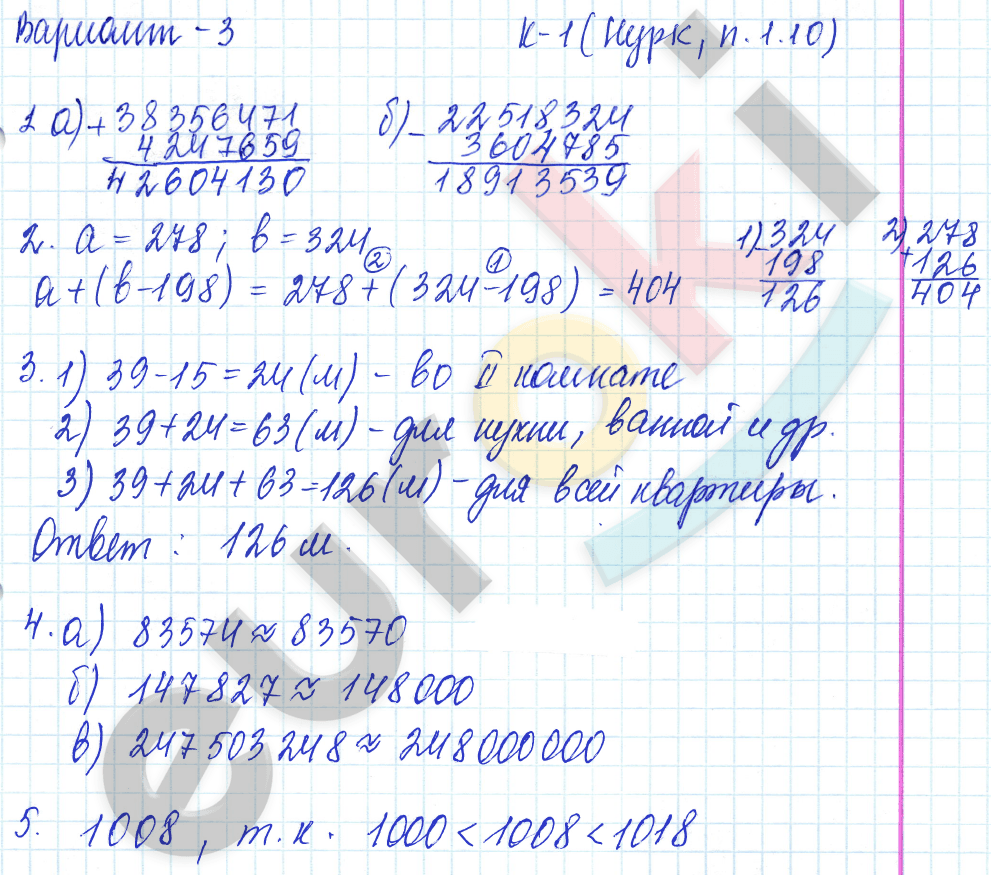 Вариант - 3 К-1 (Нурк, п.1.10)
1 а) + 38356471 б) - 22518324
4247659 3604785
42604130 18913539
2. a = 278; b = 324
1) - 324 2) + 278
198 126
126 404
a + (b - 198) = 278 + (324 - 198) = 404
2 1
3. 1) 39 - 15 = 24 (м) - во II комнате
2) 39 + 24 = 63 (м) - для кухни, ванной и др.
3) 39 + 24 + 63 = 126 (м) - для всей квартиры.
Ответ: 126 м.
4. а) 83574 ≈ 83570
б) 147827 ≈ 148000
в) 247503248 ≈ 248000000
5. 1008, т.к. 1000 < 1008 < 1018
euroki